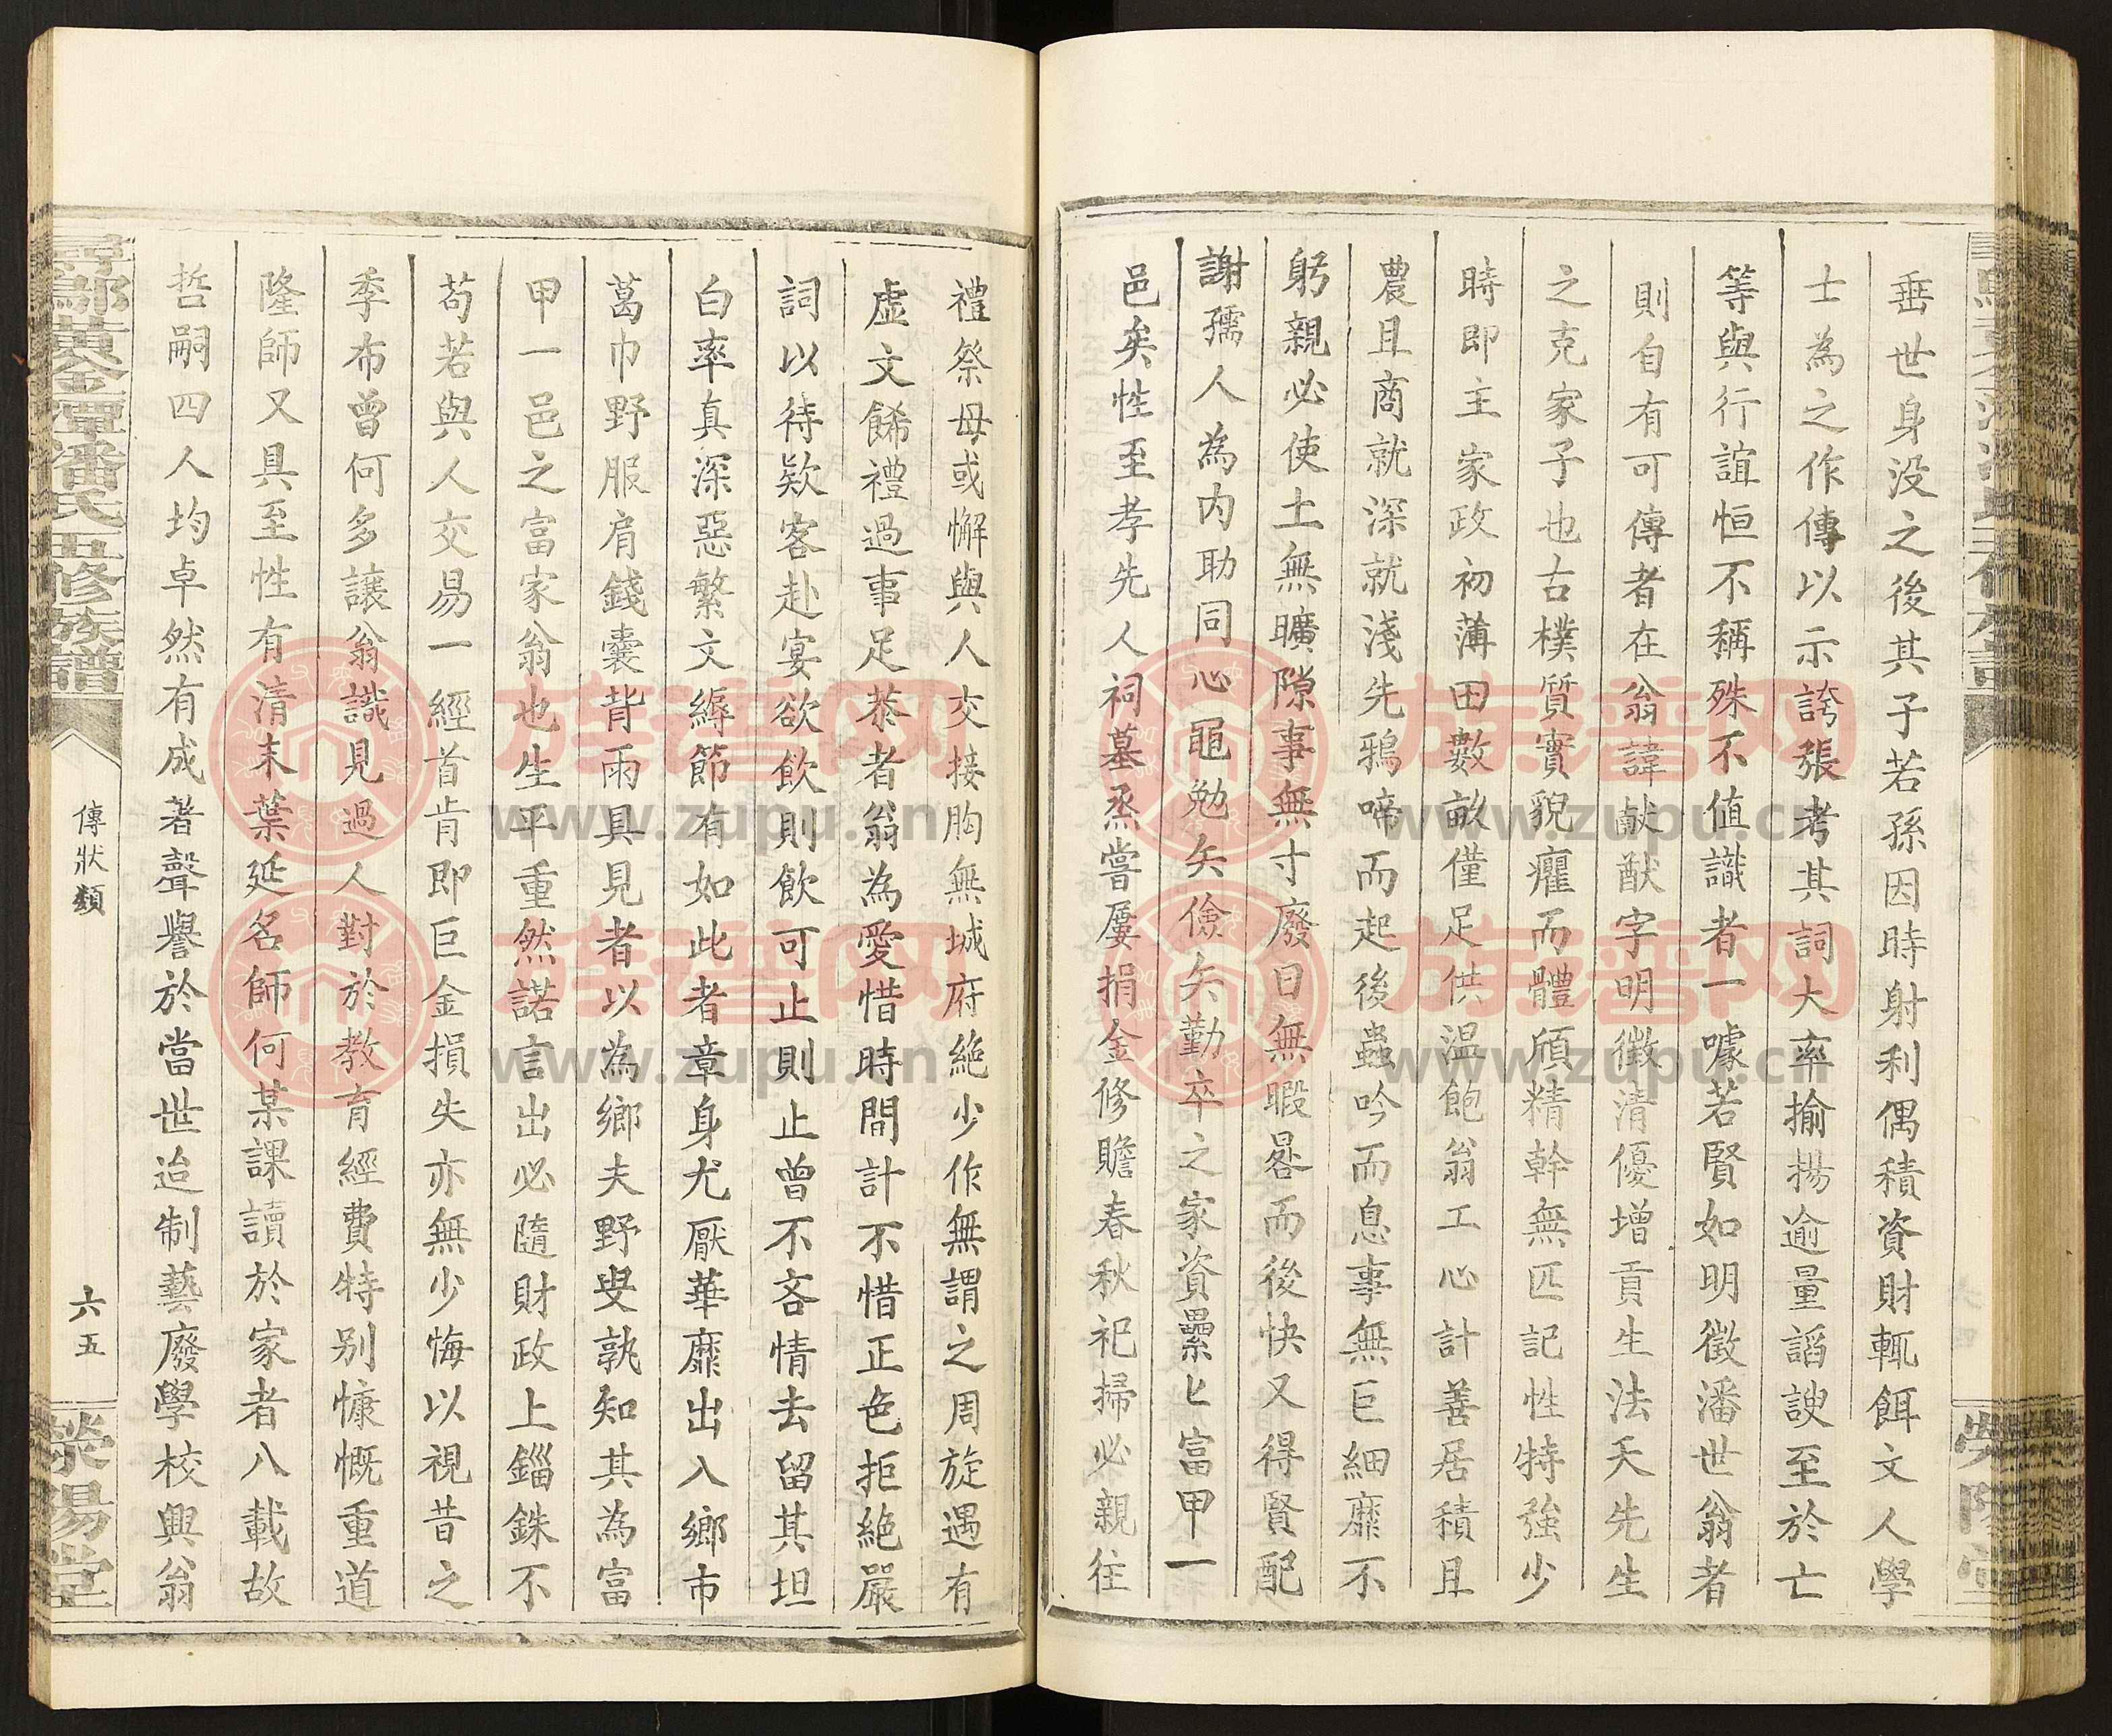 垂世身没之後其子若孫因時射利偶積資財輒餌文人學
士為之作傳以示誇張考其詞大率揄揚逾量謟諛至於亡
等與行誼恒不稱殊不值識者一噱若賢如明徵潘世翁者
則自有可傳者在翁諱献猷字明徵清優增貢生法天先生
之克家子也古樸質實貌癯而體頎精幹無匹記性特強少
時即主家政初薄田數畝僅足供温飽翁工心計善居積且
農且商就深就淺先鴉啼而起後蟲吟而息事無巨細靡不
躬親必使土無曠隙事無寸廢日無暇晷而後快又得賢配
謝孺人為内助同心黽勉矢儉矢勤卒之家資纍匕富甲一
邑矣性至孝先人祠墓烝嘗屢捐金修贍春秋祀掃必親往
禮祭母或懈與人交接胸無城府絶少作無謂之周旋遇有
虚文餙禮過事足恭者翁為愛惜時間計不惜正色拒絶嚴
詞以待欵客赴宴欲飲則飲可止則止曾不吝情去留其坦
白率真深惡繁文縟節有如此者章身尤厭華靡出入鄉市
葛巾野服肩錢囊背雨具見者以為鄉夫野叟孰知其為富
甲一邑之富家翁也生平重然諾言出必隨財政上錙銖不
苟若與人交易一經首肯即巨金損失亦無少悔以視昔之
季布曾何多讓翁識見過人對於教育經費特别慷慨重道
隆師又具至性有清末葉延名師何某課讀於家者八載故
哲嗣四人均卓然有成著聲譽於當世迨制藝廢學校興翁
尋鄔黄金潭潘氏五修族譜
傳狀類
六五
滎陽堂
族譜网
www.zupu.cn
族譜网
www.zupu.cn
族譜网
www.zupu.cn
族譜网
www.zupu.cn